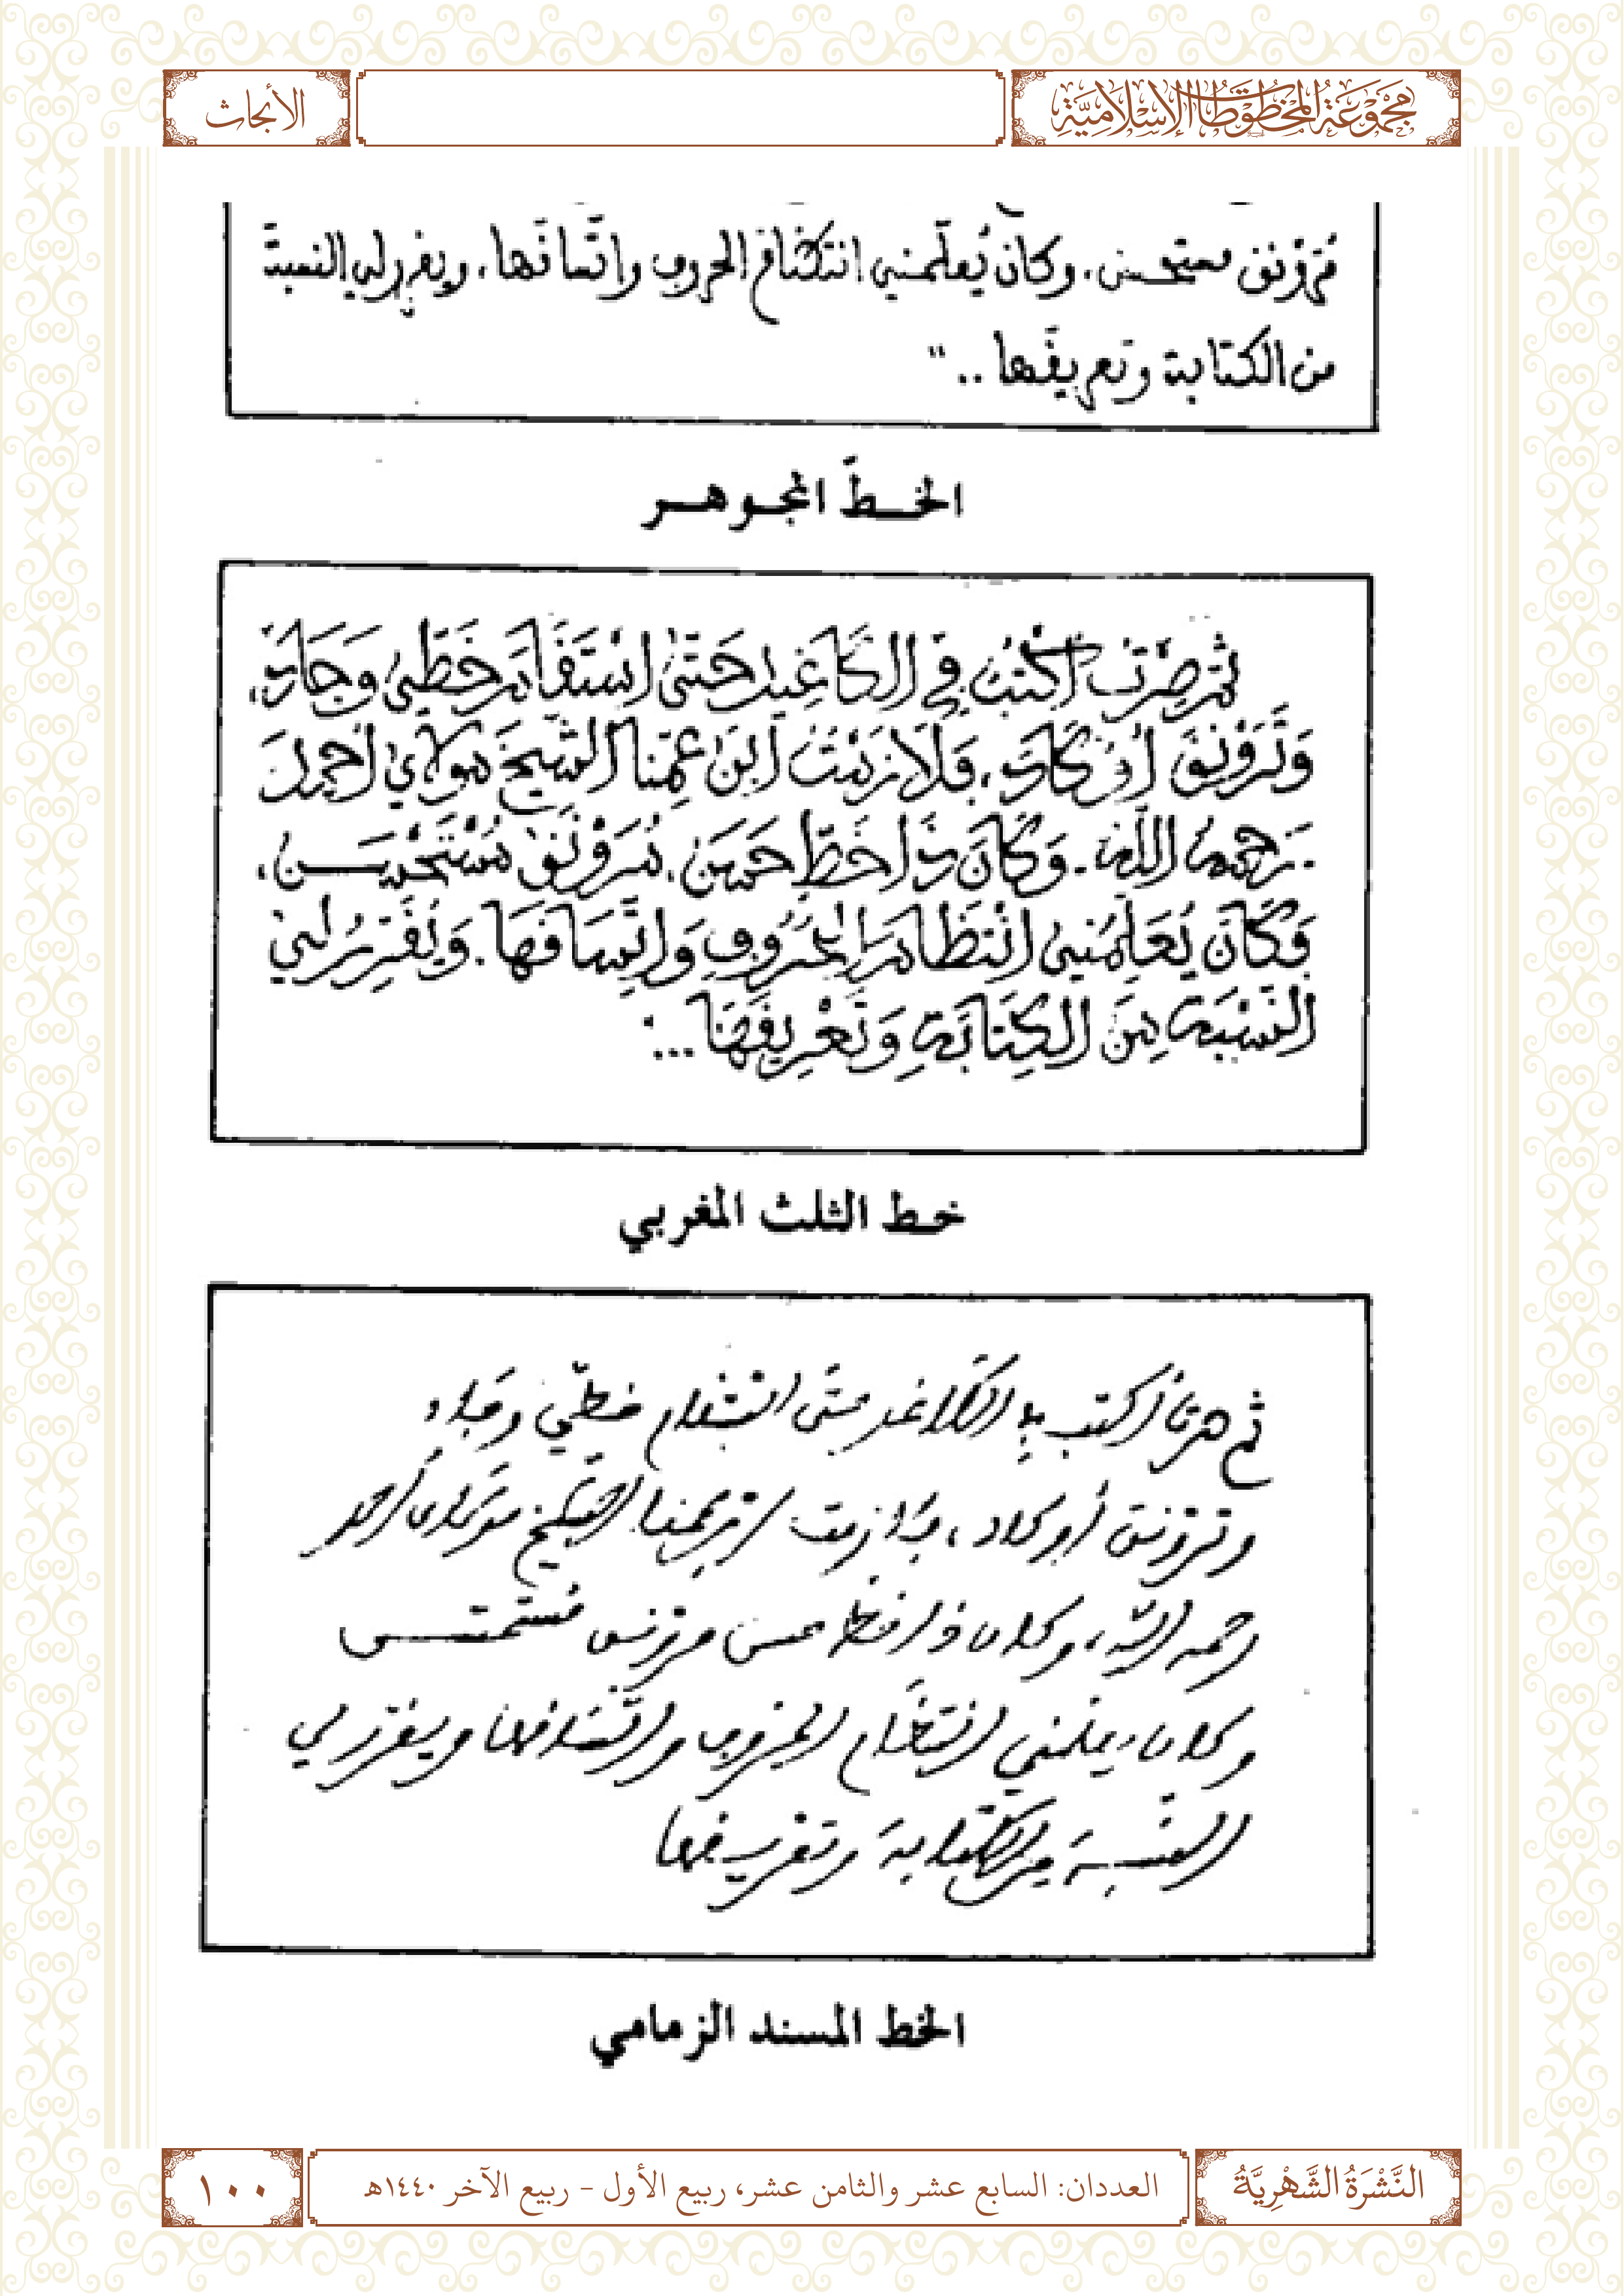 مَجْمُوعَةُ المَخْطُوطَاتِ الإِسْلَامِيَّةِ
الأبحاث
مرونق مستحسن، وكان يُعلّمني انتظام الحروف واتّساقها، ويقرر لي النسبة
من الكتابة وتعريفها .."
الخـط المجـوهـر
ثم صِرْتُ أَكْتُبُ فِي الكَاغِيدِ حَتَّى اسْتَقَامَ خَطِّي وَجَادَ،
وَتَرَوْنَقَ أَوْ كَادَ، فَلَازَمْتُ ابْنَ عَمِّنَا الشَّيْخَ مَوْلَايَ أَحْمَدَ
رَحِمَهُ اللَّهُ. وَكَانَ ذَا خَطٍّ حَسَنٍ، مُرَوْنَقٍ مُسْتَحْسَنٍ،
وَكَانَ يُعَلِّمُنِي انْتِظَامَ الْحُرُوفِ وَاتِّسَاقَهَا. وَيُقَرِّرُ لِي
النِّسْبَةَ مِنَ الكِتَابَةِ وَتَعْرِيفَهَا...
خـط الثلث المغربي
ثم صرت أكتب في الكاغد حتى استقام خطي وجاد
وترونق أو كاد، فلازمت ابن عمنا الشيخ مولاي أحمد
رحمه الله، وكان ذا خط حسن مرونق مستحسن
وكان يعلمني انتظام الحروف واتساقها ويقرر لي
النسبة من الكتابة وتعريفها
الخط المسند الزمامي
النَّشْرَةُ الشَّهْرِيَّةُ
العددان: السابع عشر والثامن عشر، ربيع الأول - ربيع الآخر ١٤٤٠هـ
١٠٠